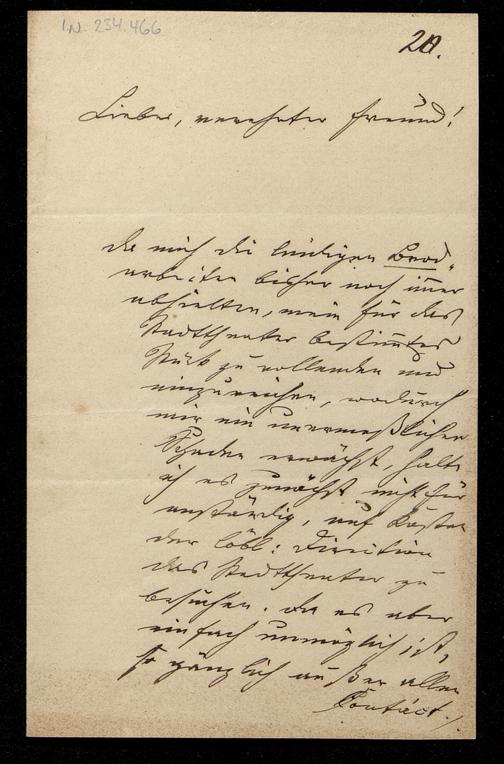 I.N. 234.466
20.
Lieber, verehrter Freund!
Da mich die leidigen Brod-
arbeiten bisher noch im̅er
abhielten, mein für das
Stadttheater bestim̅tes
Stück zu vollenden und
einzureichen, wodurch
mir ein unermeßlicher
Schaden erwächst, halte
ich es zunächst nicht für
anständig, auf Kosten
der löbl: Direction
das Stadttheater zu
besuchen. Da es aber
einfach unmöglich ist,
so gänzlich außer allen
Contact